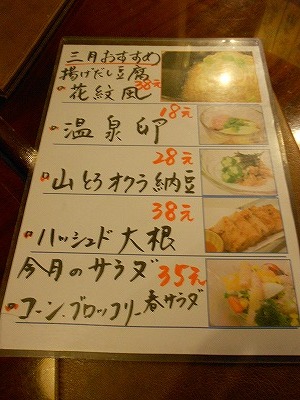 三月おすすめ
揚げだし豆腐
花紋風 38元
温泉卵 18元
山とろオクラ納豆 28元
ハッシュド大根 38元
今月のサラダ 35元
コーン.ブロッコリー春サラダ